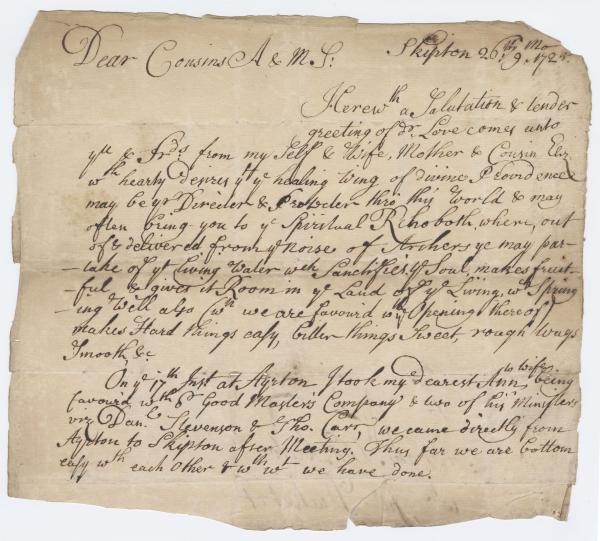 Dear Cousins A & M S: Skipton 26th 9 Mo 172
Herewth a Salutation & tender
greeting of dr. Love comes unto
you & Frds from my Self & Wife, Mother & Cousin Eliz.
wth hearty desires yt ye healing wing of divine Providence
may be yr Director & Protector thro this World & may
often bring you to ye Spiritual Rehoboth, where, out
of & delivered from ye noise of Archers ye may par-
-take of yt Living Water wch Sanctifies ye Soul, makes fruit-
-ful & gives it Room in ye Land of ye Living, wth Spring
ing Well also (wch we are favoured wth ye Opening thereof)
makes Hard things easy, bitter things Sweet, rough ways
Smooth &c
On ye 17th Inst at Ayrton I took my dearest Ann to wife, being
favoured wth or Good Master's Company & two of his Ministers
viz Danl Stevenson & Tho. Carr, we came directly from
Ayrton to Skipton after Meeting. Thus far we are bottom
easy wth each other & wth wt we have done.